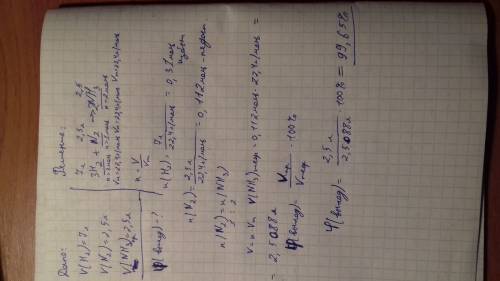 Дано:
V(H2)=7л
V(N2)=2,5л
V(NH3)пр=2,5л
φ(выход)-?
Решение:
7л 2,5л 2,5
3H2 + N2 → 2NH3
n=3моль n=1моль n=2моль
Vm=22,4л/моль Vm=22,4л/моль Vm=22,4л/моль
n = V/Vm
n(H2)= 7л / 22,4л/моль = 0,31моль избыт
n(N2)= 2,5л / 22,4л/моль = 0,112моль - недост
n(N2) = n(NH3)
1 : 2
V=n·Vm V(NH3)теор=0,112моль·22,4л/моль =
= 2,5088л
φ(выход)= Vпр. / Vтеор. · 100%
φ(выход)= 2,5л / 2,5088л · 100% = 99,65%